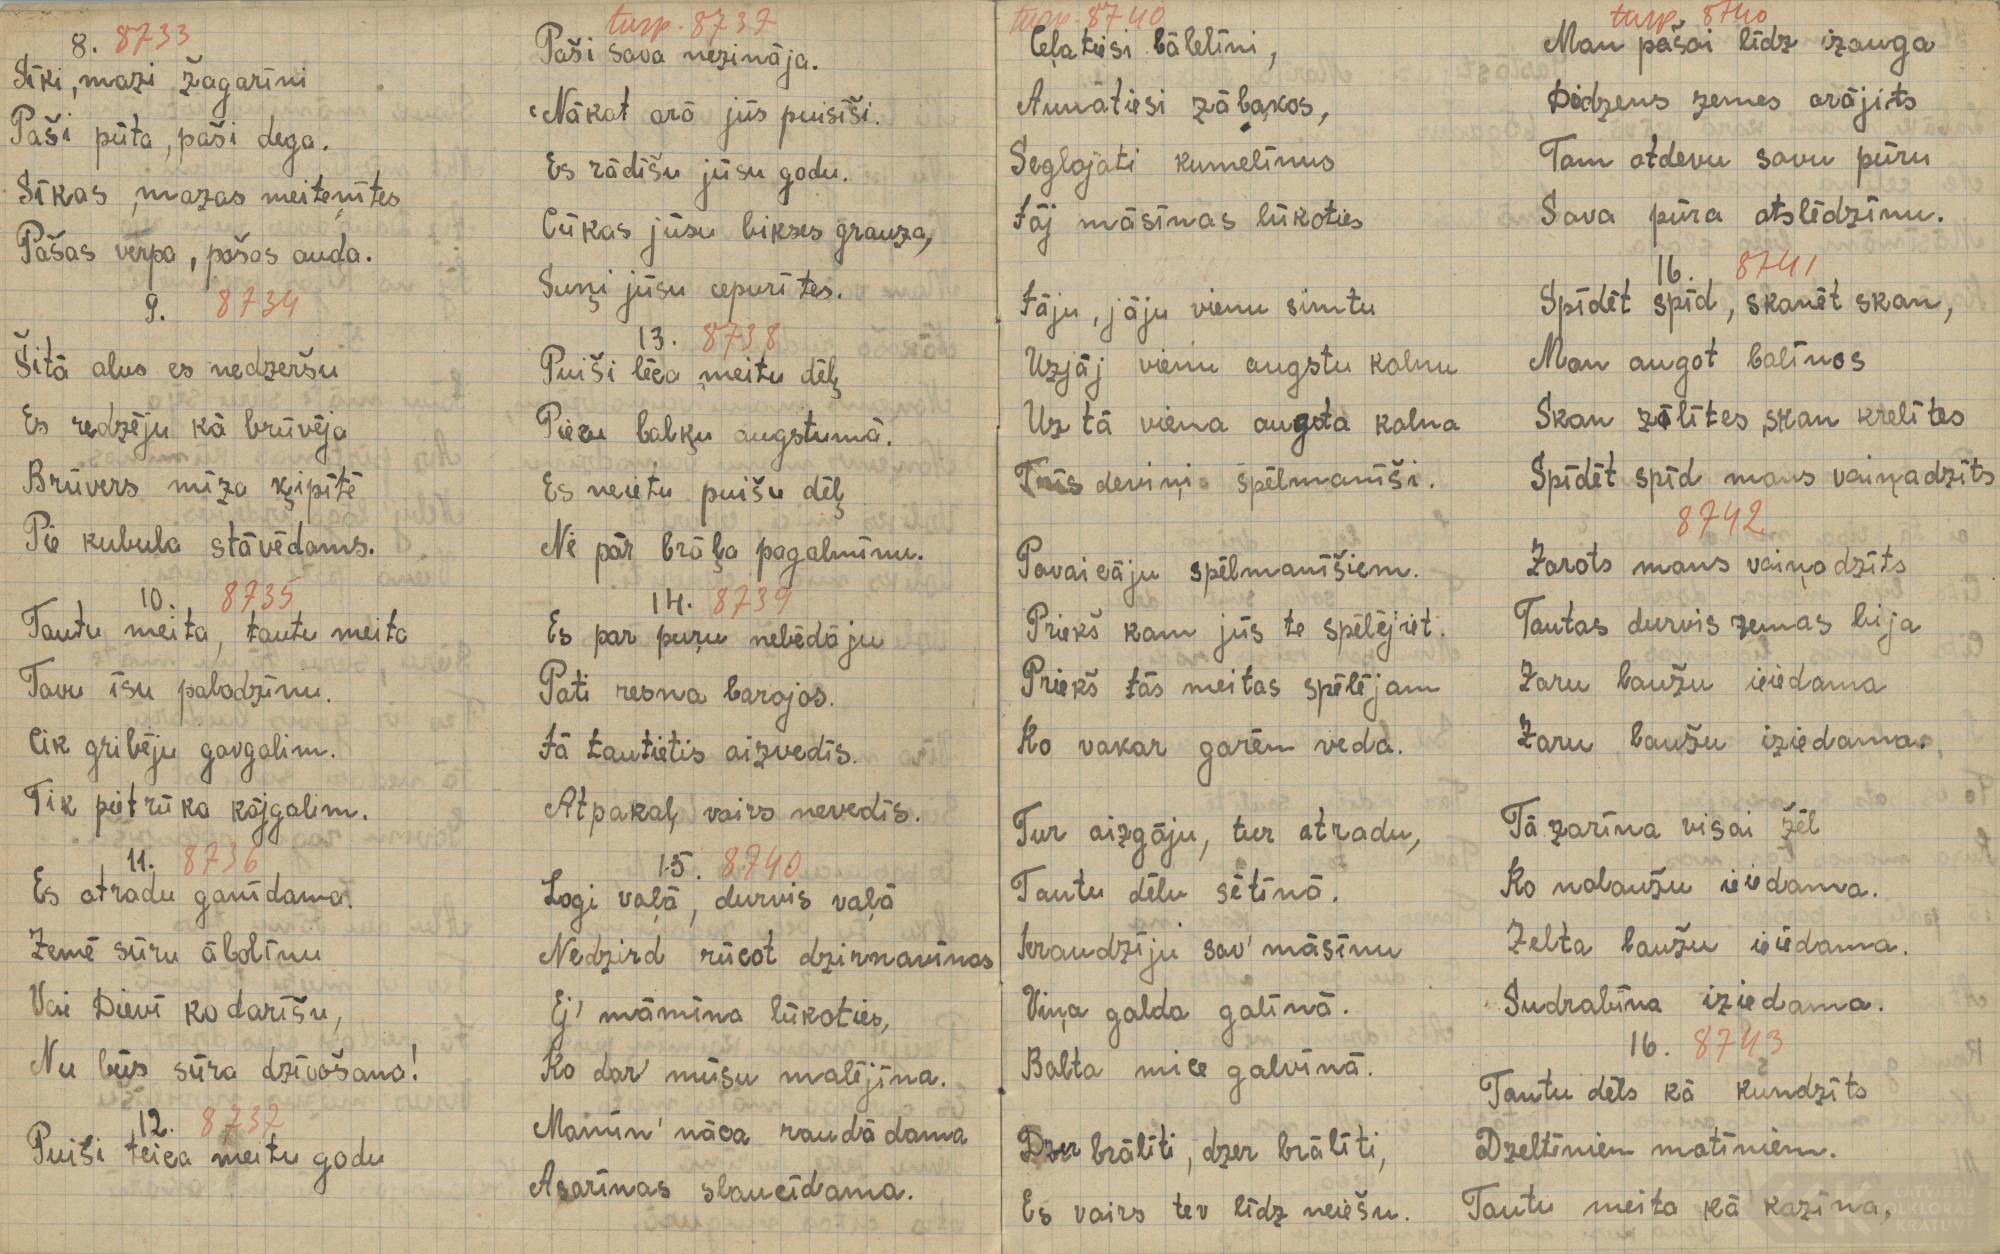 8. 8733
Sīki, mazi žagarīni
Paši pūta, paši dega.
Sīkas, mazas meitenītes
Pašas vērpa, pašas auda.
9. 8734
Šitā alus es nedzeršu
Es redzēju kā brūvēja
Brūvers mīza ķipītē
Pie kubula stāvēdams.
10. 8735
Tautu meita, tautu meita
Tavu īsu paladziņu.
Cik gribēju gavgalim.
Tik pietrūka kājgalim.
11. 8736
Es atradu ganīdama.
Zemē sūru āboliņu
Vai Dievi ko darīšu,
Nu būs sūra dzīvošana!
12. 8737
Puiši teica meitu godu
turp. 8737
Paši sava nezināja.
Nākat arā jūs puisīši.
Es rādīšu jūsu godu.
Cūkas jūsu bikses grauza,
Suņi jūsu cepurītes.
13. 8738
Puiši lēca meitu dēļ
Piecu baļķu augstumā.
Es neietu puišu dēļ
Ne pār brāļa pagalmīnu.
14. 8739
Es par puņu nebēdāju
Pati resna barojos.
Jā tautietis aizvedīs.
Atpakaļ vairs nevedīs.
15. 8740
Logi vaļā, durvis vaļā
Nedzird rūcot dzirnavīnas
Ej' māmīna lūkoties,
Ko dar' mūsu malējīna.
Mamīn' nāca raudādama
Asarīnas slaucīdama.
turp. 8740
Ceļatiesi bālelīni,
Aunātiesi zābakos,
Seglojati kumelīnus
Jāj māsīnas lūkoties
Jāju, jāju vienu simtu
Uzjāj vienu augstu kalnu
Uz tā viena augsta kalna
Trīs deviņi spēlmanīši.
Pavaicāju spēlmanīšiem.
Priekš kam jūs te spēlējiet.
Priekš tās meitas spēlējam
Ko vakar garēm veda.
Tur aizgāju, tur atradu,
Tautu dēlu sētīnā.
Ieraudzīju sav' māsīnu
Viņa galda galīnā.
Balta mice galvīnā.
Dzer brālīti, dzer brālīti,
Es vairs tev līdz neiešu.
turp. 8740
Man pašai līdz izauga
Didzens zemes arājits
Tam atdevu savu pūru
Sava pūra atslēdzīnu.
16. 8741
Spīdēt spīd, skanēt skan,
Man augot balīnos
Skan zīlītes, skan krelītes
Spīdēt spīd mans vaiņadzīts
8742
Zarots mans vaiņadzīts
Tautas durvis zemas bija
Zaru laužu ieiedama
Zaru laužu iziedama.
Tā zarīna visai žēl
Ko nolaužu ieiedama.
Zelta laužu ieiedama.
Sudrabīna iziedama.
16. 8743
Tautu dēls kā kundzīts
Dzeltīniem matīniem.
Tautu meita kā kazīna,
LATVIEŠU
FOLKLORAS
KRĀTUVE